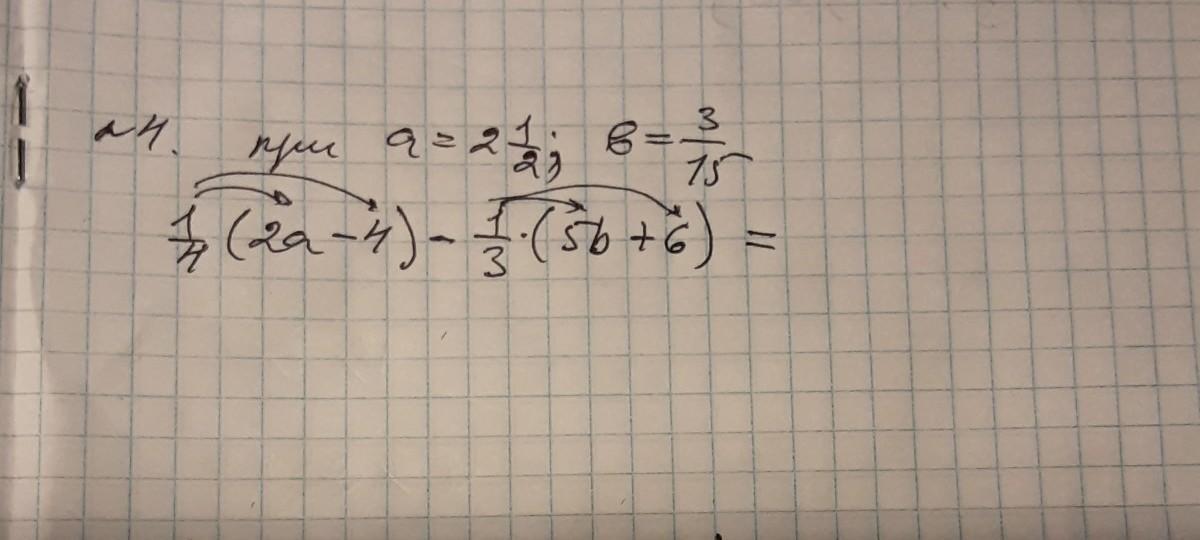 №4. при a = 2 1/2; b = 3/15
1/4 (2a - 4) - 1/3 · (5b + 6) =